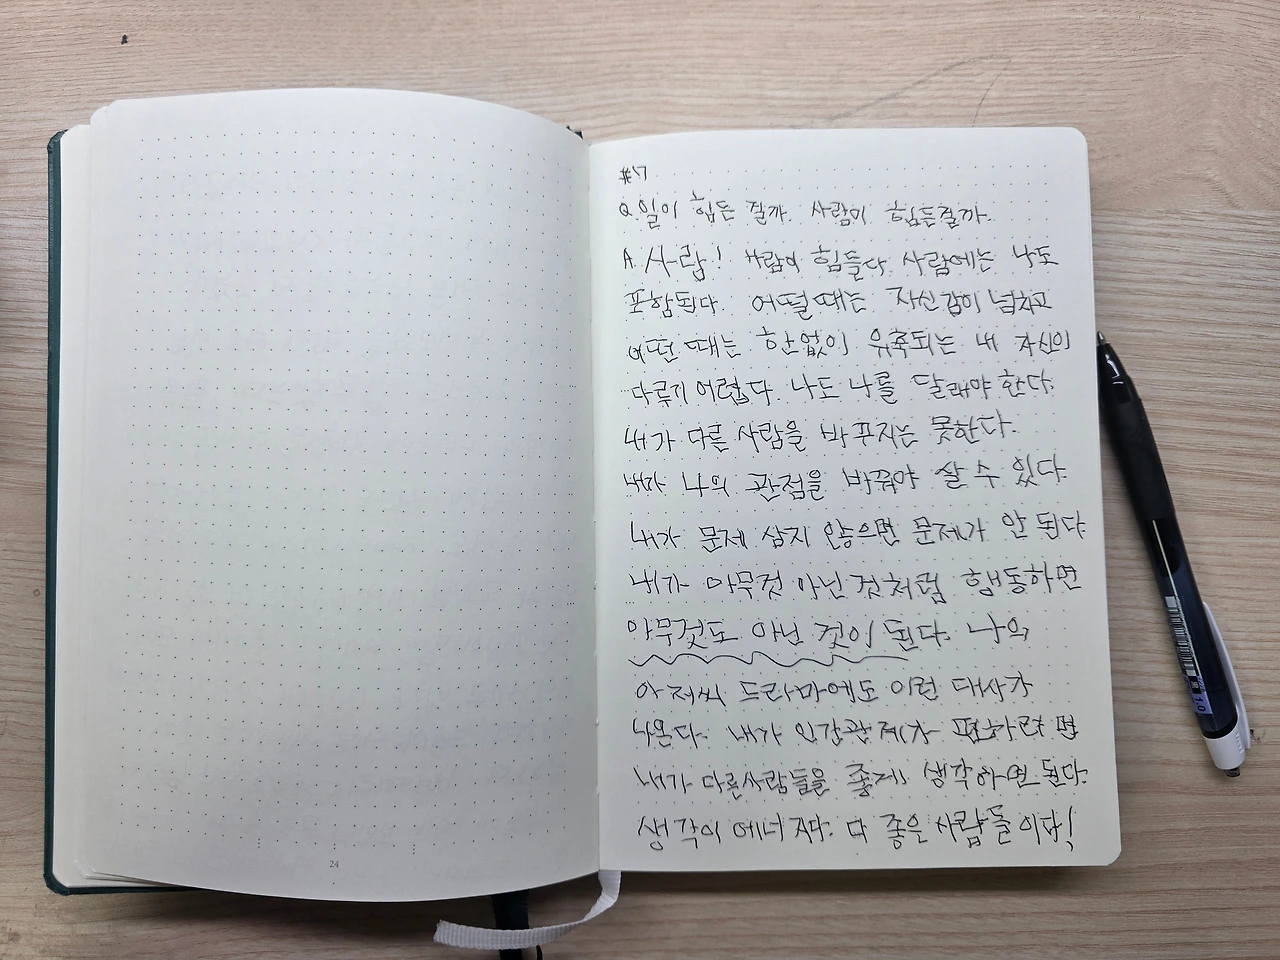 #17
Q. 일이 힘든 걸까. 사람이 힘든 걸까.
A. 사람! 사람이 힘들다. 사람에는 나도
포함된다. 어떨 때는 자신감이 넘치고
어떤 때는 한없이 위축되는 내 자신이
다루기 어렵다. 나도 나를 달래야 한다.
내가 다른 사람을 바꾸지는 못한다.
내가 나의 관점을 바꿔야 살 수 있다.
내가 문제 삼지 않으면 문제가 안 된다
내가 아무것 아닌 것처럼 행동하면
아무것도 아닌 것이 된다. 나의
아저씨 드라마에도 이런 대사가
나온다. 내가 인간관계가 편하려면
내가 다른사람들을 좋게 생각하면 된다.
생각이 에너지다. 다 좋은 사람들이다!
24
1.0